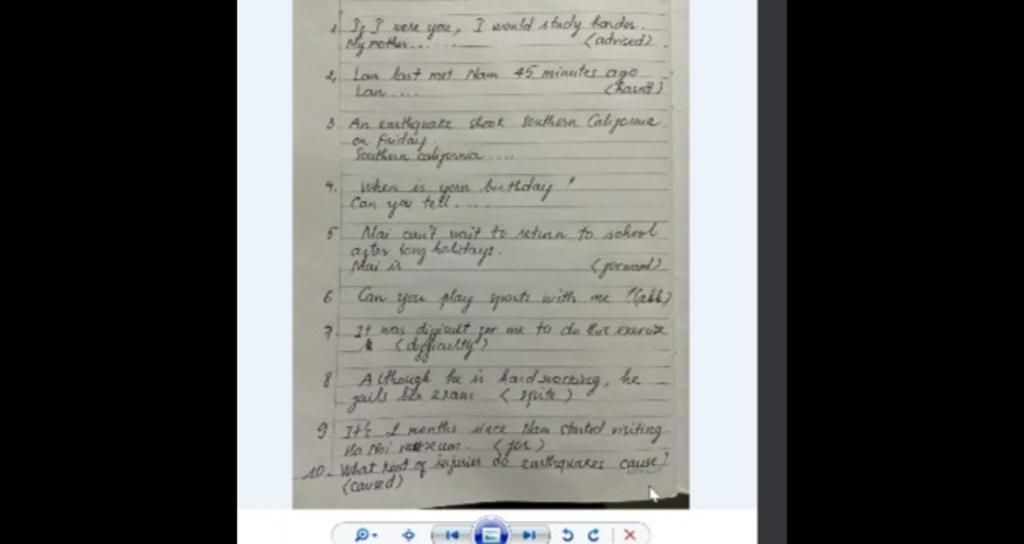 1. If I were you, I would study harder.
My mother...... (advised).
2, Lan last met Nam 45 minutes ago
Lan .... (hasn't)
3. An earthquake shook Southern California
on Friday.
Southern california ....
4. When is your birthday?
Can you tell ....
5 Mai can't wait to return to school
after long holidays.
Mai is (forward)
6 Can you play sports with me?
7. It was difficult for me to do this exercise
(difficulty)
8 Although he is hard working, he
fails his exam (spite)
9 It's 2 months since Nam started visiting
Ha Noi museum. (for)
10. What kind of injuries do earthquakes cause?
(caused)